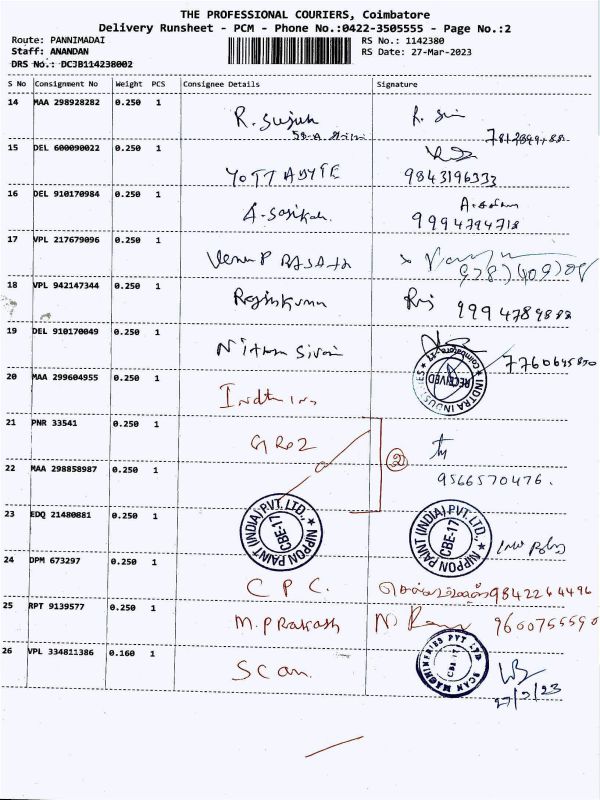 THE PROFESSIONAL COURIERS, Coimbatore
Delivery Runsheet - PCM - Phone No.:0422-3505555 - Page No.:2
Route: PANNIMADAI
RS No.: 1142380
Staff: ANANDAN
RS Date: 27-Mar-2023
DRS No.: DCJB114238002
S No Consignment No Weight PCS Consignee Details Signature
14 MAA 298928282 0.250 1
15 DEL 600090022 0.250 1 YOTTABYTE 9843196333
16 DEL 910170984 0.250 1 9994794718
17 VPL 217679096 0.250 1
18 VPL 942147344 0.250 1 Rajinkumar 9994789888
19 DEL 910170049 0.250 1
20 MAA 299604955 0.250 1
RECEIVED
INDTRA INDUSTRIES
Coimbatore-17
21 PNR 33541 0.250 1 GROZ
2
22 MAA 298858987 0.250 1 9566570476.
23 EDQ 21480881 0.250 1 NIPPON PAINT (INDIA) PVT. LTD., CBE-17 NIPPON PAINT (INDIA) PVT. LTD., CBE-17
24 DPM 673297 0.250 1 C P C. 9842264496
25 RPT 9139577 0.250 1 M. Prakash 9600755590
26 VPL 334811386 0.160 1 Scan. SCAN MACHINERIES PVT LTD CBE-17
27/3/23